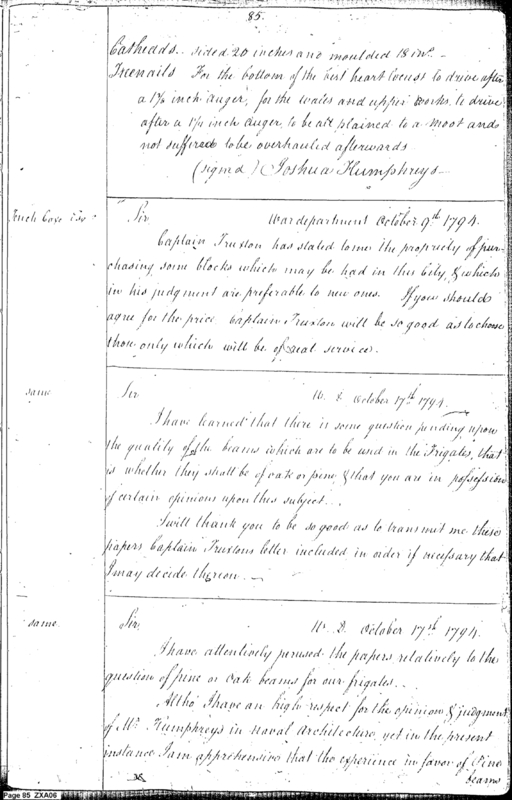 85.
Catheads.. sided 20 inches and moulded 18 ins. –
Treenails For the bottom of the best heart locust to drive after
a 1⅜ inch auger, for the wales and upper works, to drive
after a 1¼ inch auger, to be all plained to a moot and
not suffered to be overhauled afterwards
(signed) Joshua Humphreys –
Tench Coxe Esqr
Sir, War department October 9th 1794.
Captain Truxton has stated to me the propriety of pur-
chasing some blocks which may be had in this City, & which
in his judgment are preferable to new ones. If you should
agree for the price Captain Truxton will be so good as to choose
those only which will be of real service.
same
Sir W. D. October 17th 1794.
I have learned that there is some question pending upon
the quality of the beams which are to be used in the Frigates, that
is whether they shall be of oak or pine, & that you are in possession
of certain opinions upon this subject...
I will thank you to be so good as to transmit me these
papers Captain Truxtons letter included in order if necessary that
I may decide thereon. –
same
Sir, W. D. October 17th 1794.
I have attentively perused the papers, relatively to the
question of pine or oak beams for our frigates..
Altho' I have an high respect for the opinion & judgment
of Mr. Humphreys in Naval Architecture, yet in the present
instance I am apprehensive that the experience in favor of Pine
beams
Page 85 ZXA06